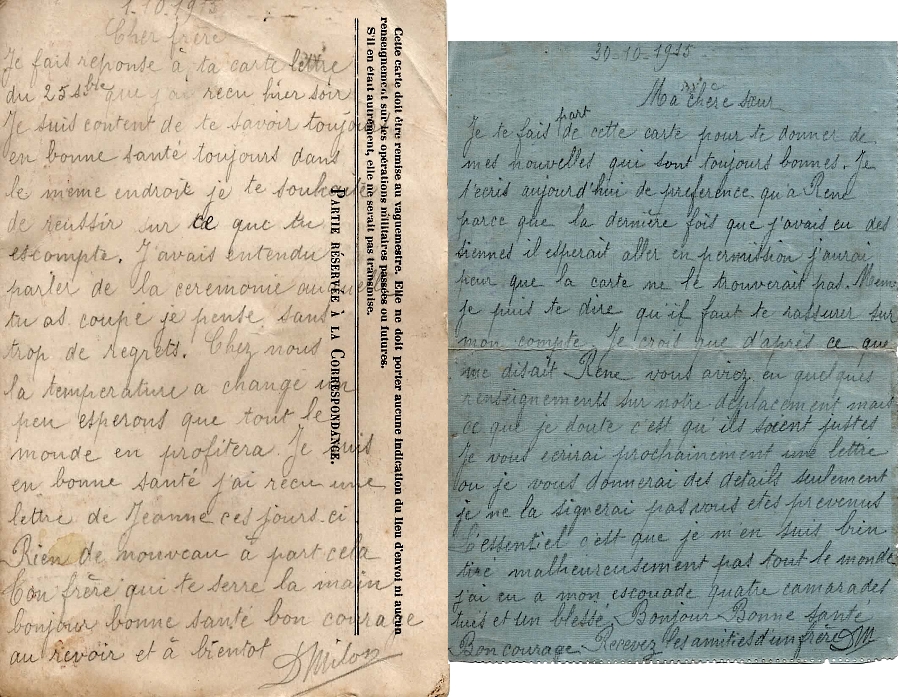 1.10.1915
Cher frère
Je fais reponse à ta carte lettre
du 25 sbre que j'ai recu hier soir
Je suis content de te savoir toujours
en bonne santé toujours dans
le même endroit je te souhaite
de reussir sur ce que tu
escompte. J'avais entendu
parler de la ceremonie
tu as coupé je pense sans
trop de regrets. Chez nous
la temperature a change un
peu esperons que tout le
monde en profitera. Je suis
en bonne santé j'ai recu une
lettre de Jeanne ces jours-ci
Rien de nouveau à part cela
Ton frère qui te serre la main
bonjour bonne santé bon courage
au revoir et à bientot DMilon
Cette carte doit être remise au vaguemestre. Elle ne doit porter aucune indication du lieu d'envoi ni aucun
renseignement sur les opérations militaires passées ou futures.
S'il en était autrement, elle ne serait pas transmise.
PARTIE RÉSERVÉE À LA CORRESPONDANCE.
30-10-1915
Ma chère sœur
Je te fais part de cette carte pour te donner de
mes nouvelles qui sont toujours bonnes. Je
t'ecris aujourd'hui de preference qu'a René
parce que la dernière fois que j'avais eu des
siennes il esperait aller en permission j'aurai
peur que la carte ne le trouverait pas.
je puis te dire qu'il faut te rassurer sur
mon compte. Je crois que d'après ce que
me disait René vous aviez eu quelques
renseignements sur notre deplacement mais
ce que je doute c'est qu'ils soient justes
Je vous ecrirai prochainement une lettre
ou je vous donnerai des details seulement
je ne la signerai pas vous etes prevenus
L'essentiel c'est que je m'en suis bien
tiré malheureusement pas tout le monde
j'ai eu a mon escouade quatre camarades
tués et un blessé. Bonjour Bonne santé
Bon courage Recevez les amitiés d'un frère DM